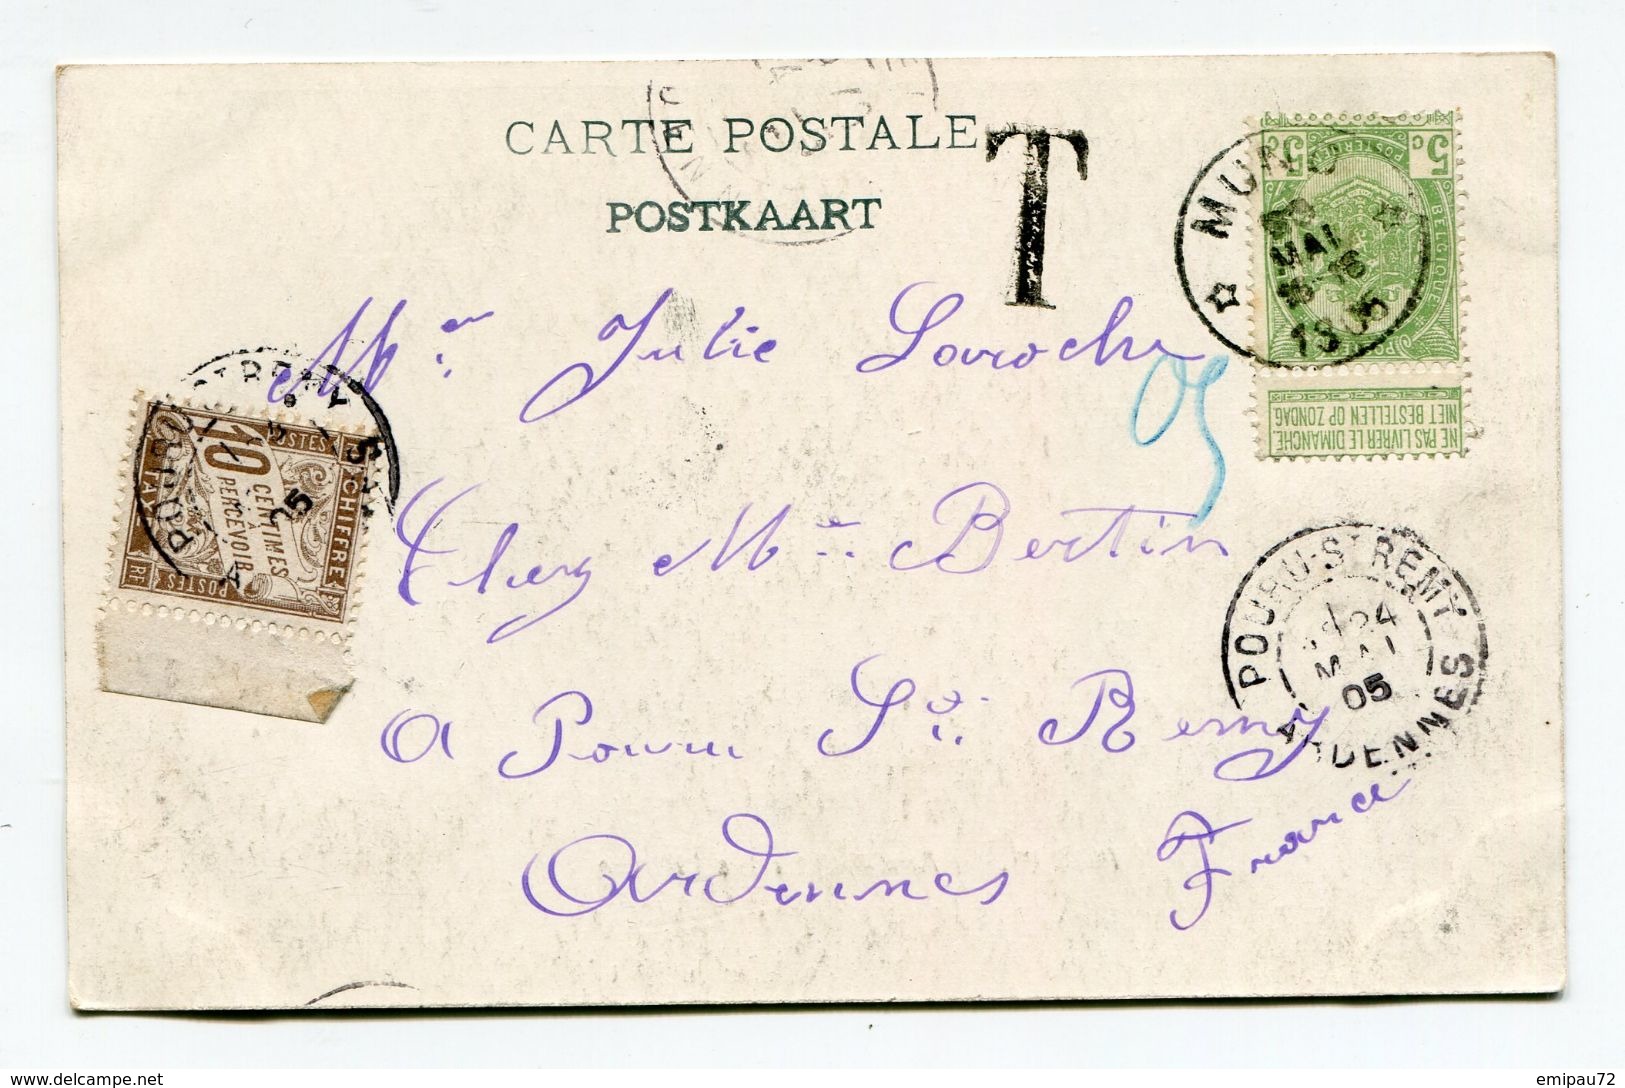 CARTE POSTALE
POSTKAART
T
5c 5c
POSTERIJEN
BELGIQUE
MAI
1905
NE PAS LIVRER LE DIMANCHE
NIET BESTELLEN OP ZONDAG
Mr Julie Laroche
05
Chez Mr Bertin
a Pouru St Remy
Ardennes
France
POURU-ST REMY
24
MAI
05
ARDENNES
POSTES
CHIFFRE
TAXE
10
CENTIMES
À
PERCEVOIR
POSTES
RE
05
delcampe.net
emipau72